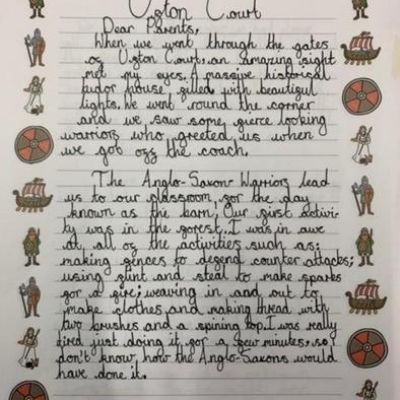 Ufton Court
Dear Parents,
When we went through the gates
of Ufton Court, an amazing sight
met my eyes. A massive historical
tudor house filled with beautiful
lights. We went round the corner
and we saw some fierce looking
warriors who greeted us when
we got off the coach.
The Anglo-Saxon-Warriors lead
us to our classroom for the day
known as the barn; Our first activi-
ty was in the forest. I was in awe
at all of the activities such as:
making fences to defend counter attacks;
using flint and steal to make sparks
for a fire; weaving in and out to
make clothes and making thread with
two brushes and a spining top. I was really
tired just doing it for a few minutes, so I
don't know, how the Anglo-Saxons would
have done it.